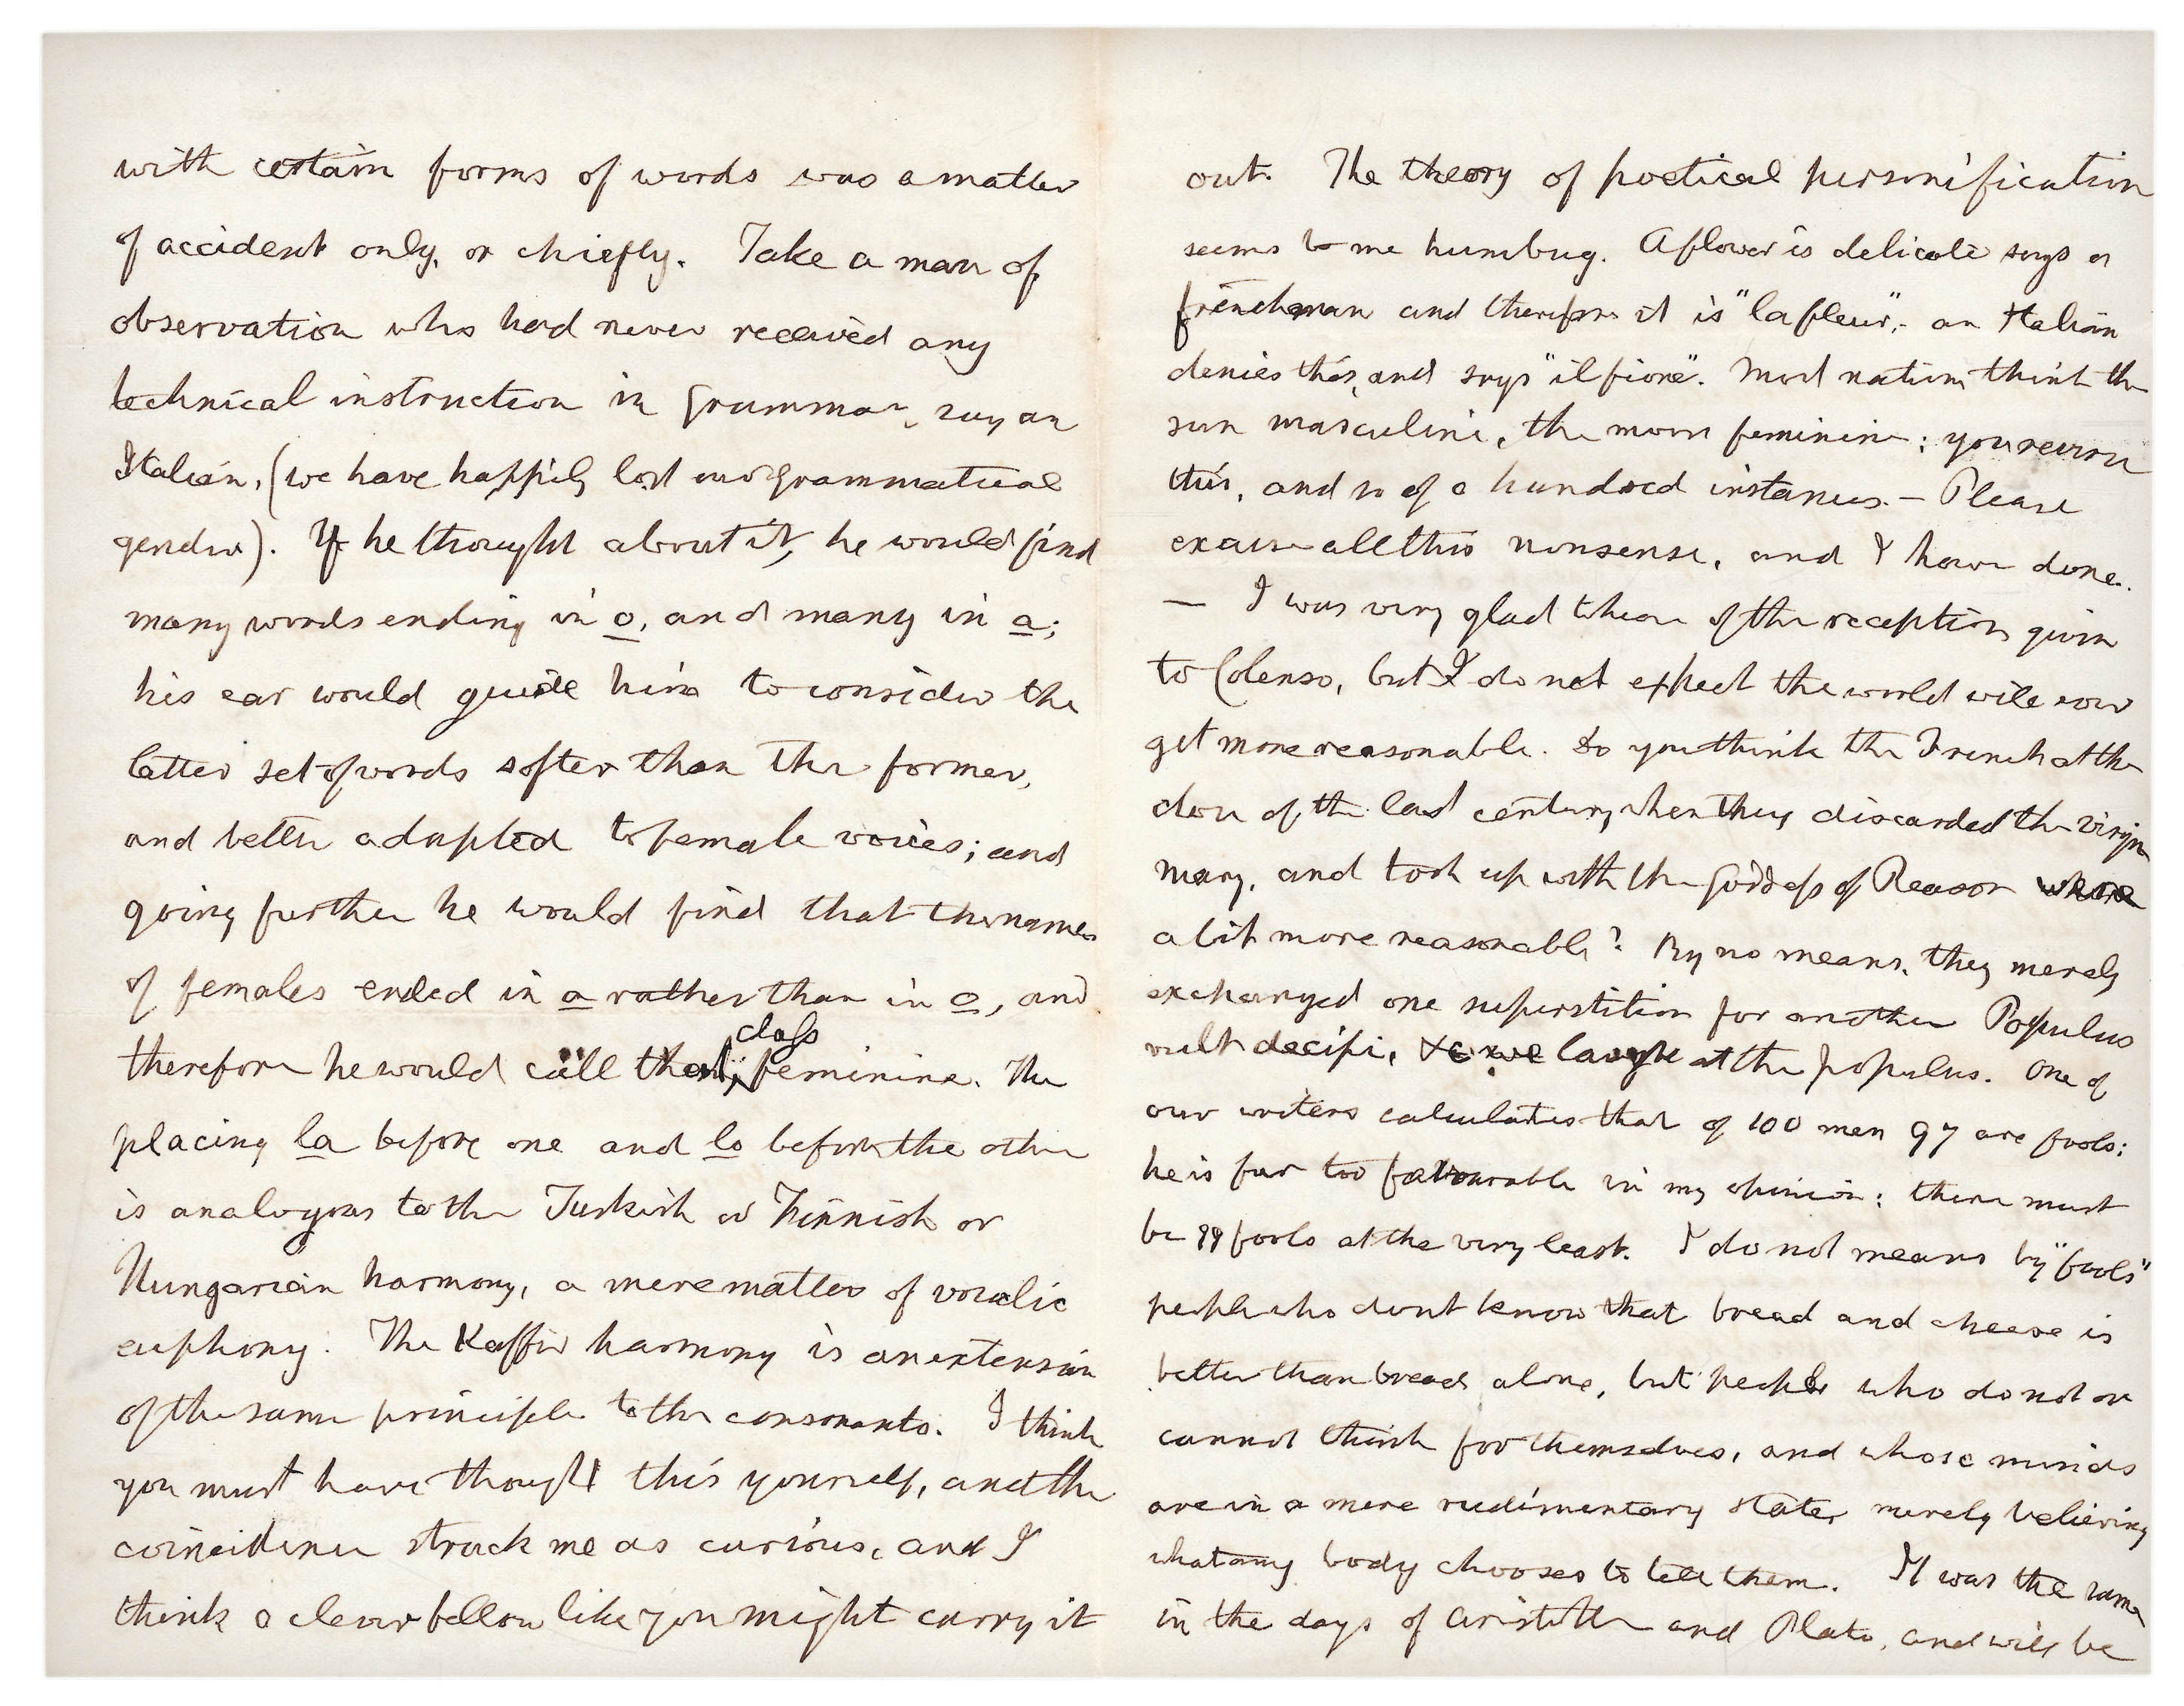 with certain forms of words was a matter
of accident only, or chiefly. Take a man of
observation who had never received any
technical instruction in grammar, say an
Italian, (we have happily lost our grammatical
gender). If he thought about it, he would find
many words ending in o, and many in a;
his ear would guide him to consider the
latter set of words softer than the former,
and better adapted to female voices; and
going further he would find that the names
of females ended in a rather than in o, and
class
therefore he would call that feminine. The
placing la before one and lo before the other
is analogous to the Turkish or Finnish or
Hungarian harmony, a mere matter of vocalic
euphony. The Kaffir harmony is an extension
of the same principle to the consonants. I think
you must have thought this yourself, and the
coincidence struck me as curious, and I
think a clever fellow like you might carry it
out. The theory of poetical personification
seems to me humbug. A flower is delicate says a
frenchman and therefore it is "la fleur", - an Italian
denies this, and says "il fiore". Most nations think the
sun masculine, the moon feminine; you reverse
this, and so of a hundred instances. — Please
excuse all this nonsense, and I have done.
— I was very glad to hear of the reception given
to Colenso, but I do not expect the world will ever
get more reasonable. Do you think the French at the
close of the last century when they discarded the virgin
Mary, and took up with the Goddess of Reason were
a bit more reasonable? By no means, they merely
exchanged one superstition for another Populus
vult decipi, & we laugh at the populus. One of
our writers calculates that of 100 men 97 are fools;
he is far too favourable in my opinion: there must
be 99 fools at the very least. I do not means by "fools"
people who dont know that bread and cheese is
better than bread alone, but people who do not or
cannot think for themselves, and whose minds
are in a mere rudimentary state, merely believing
what any body chooses to tell them. It was the same
in the days of Aristotle and Plato, and will be